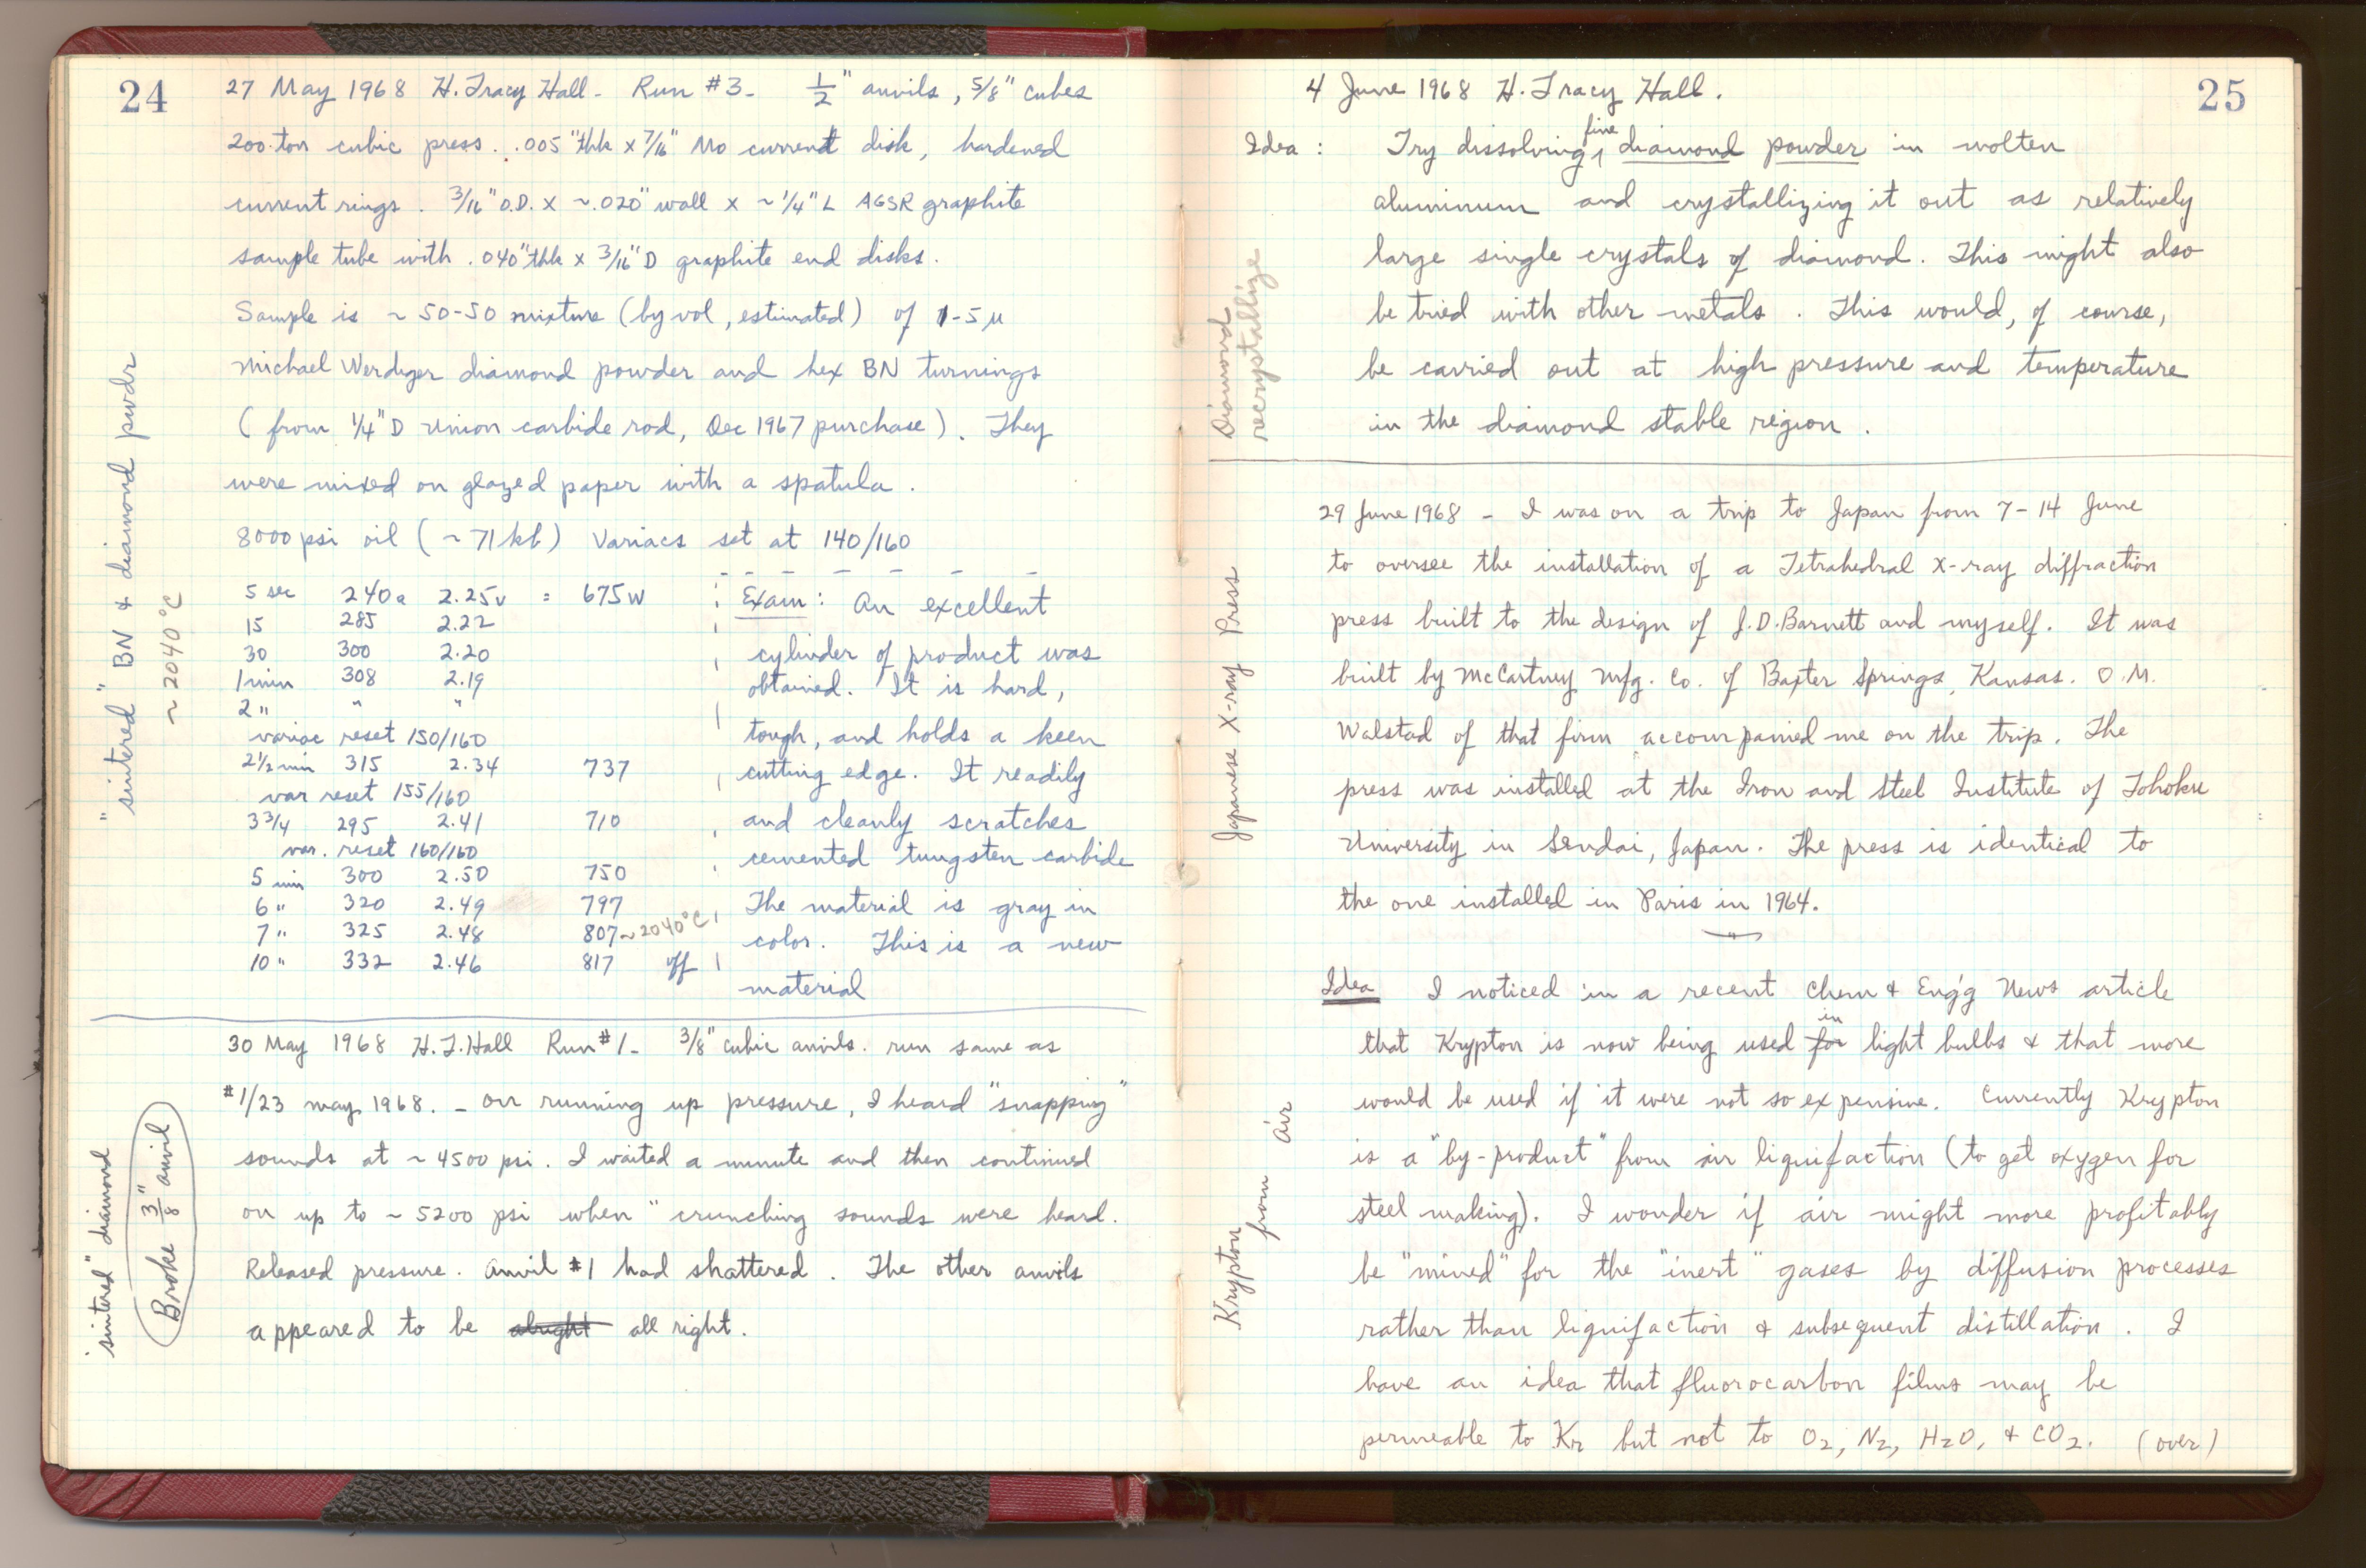 24
27 May 1968 H. Tracy Hall - Run #3 - 1/2" anvils, 5/8" cubes
200 ton cubic press. .005"thk x 7/16" Mo current disk, hardened
current rings. 3/16" O.D. x ~.020" wall x ~1/4" L AGSR graphite
sample tube with .040"thk x 3/16" D graphite end disks.
Sample is ~50-50 mixture (by vol, estimated) of 1-5 μ
Michael Werdiger diamond powder and hex BN turnings
(from 1/4" D Union carbide rod, Dec 1967 purchase). They
were mixed on glazed paper with a spatula.
8000 psi oil (~71 kb) Variacs set at 140/160
"sintered" BN & diamond pwdr
~2040°C
5 sec 240a 2.25v = 675W
15 285 2.22
30 300 2.20
1 min 308 2.19
2 " " "
variac reset 150/160
2½ min 315 2.34 737
var reset 155/160
3 3/4 295 2.41 710
var. reset 160/160
5 min 300 2.50 750
6 " 320 2.49 797
7 " 325 2.48 807 ~2040°C
10 " 332 2.46 817 off
Exam: An excellent
cylinder of product was
obtained. It is hard,
tough, and holds a keen
cutting edge. It readily
and cleanly scratches
cemented tungsten carbide
The material is gray in
color. This is a new
material
30 May 1968 H. T. Hall Run #1 - 3/8" cubic anvils. run same as
#1/23 may 1968. - On running up pressure, I heard "snapping"
sounds at ~4500 psi. I waited a minute and then continued
on up to ~5200 psi when "crunching sounds were heard.
Released pressure. Anvil #1 had shattered. The other anvils
appeared to be alright all right.
"sintered" diamond
Broke 3/8" anvil
25
4 June 1968 H. Tracy Hall.
Idea: Try dissolving fine diamond powder in molten
aluminum and crystallizing it out as relatively
large single crystals of diamond. This might also
be tried with other metals. This would, of course,
be carried out at high pressure and temperature
in the diamond stable region.
Diamond
recrystallize
29 June 1968 - I was on a trip to Japan from 7-14 June
to oversee the installation of a Tetrahedral X-ray diffraction
press built to the design of J. D. Barnett and myself. It was
built by McCartney Mfg. Co. of Baxter Springs, Kansas. O. M.
Walstad of that firm accompanied me on the trip. The
press was installed at the Iron and Steel Institute of Tohoku
University in Sendai, Japan. The press is identical to
the one installed in Paris in 1964.
Japanese X-ray Press
Idea I noticed in a recent Chem & Eng'g News article
that Krypton is now being used for in light bulbs & that more
would be used if it were not so expensive. Currently Krypton
is a "by-product" from air liquifaction (to get oxygen for
steel making). I wonder if air might more profitably
be "mined" for the "inert" gases by diffusion processes
rather than liquifaction & subsequent distillation. I
have an idea that fluorocarbon films may be
permeable to Kr but not to O₂, N₂, H₂O, & CO₂. (over)
Krypton
from air